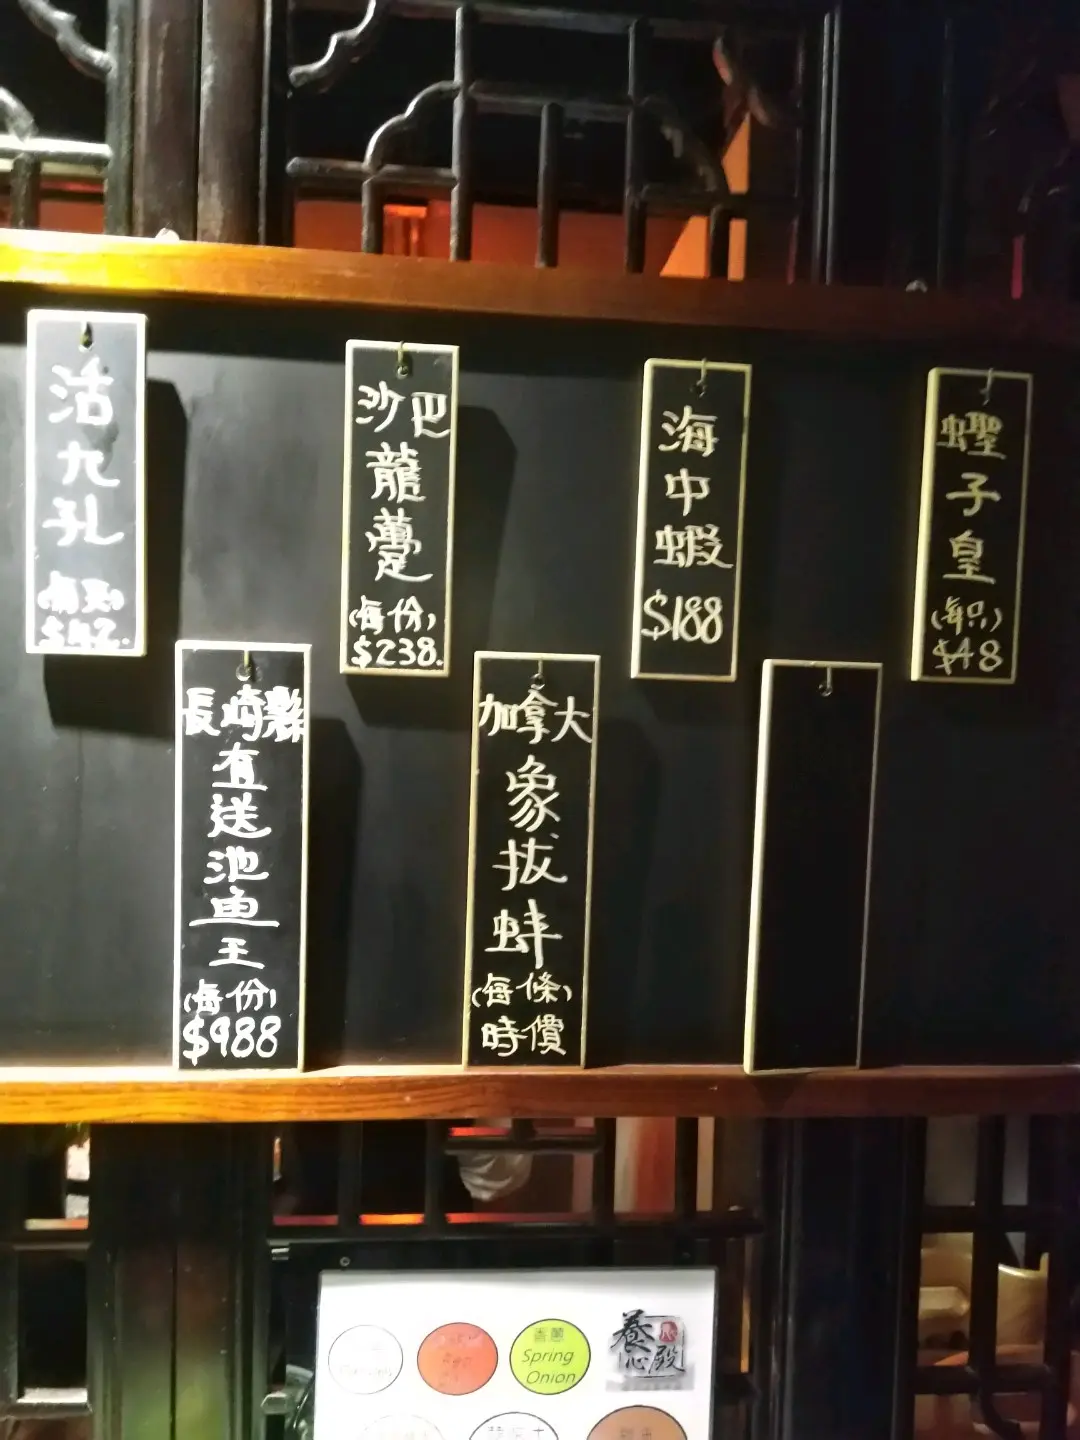 活九孔
$42.
沙巴
龍躉
(每份)
$238.
海中蝦
$188
蟶子皇
(每只)
$48
長崎縣
直送池魚王
(每份)
$988
加拿大
象拔蚌
(每條)
時價
香蔥
Spring
Onion
養心殿